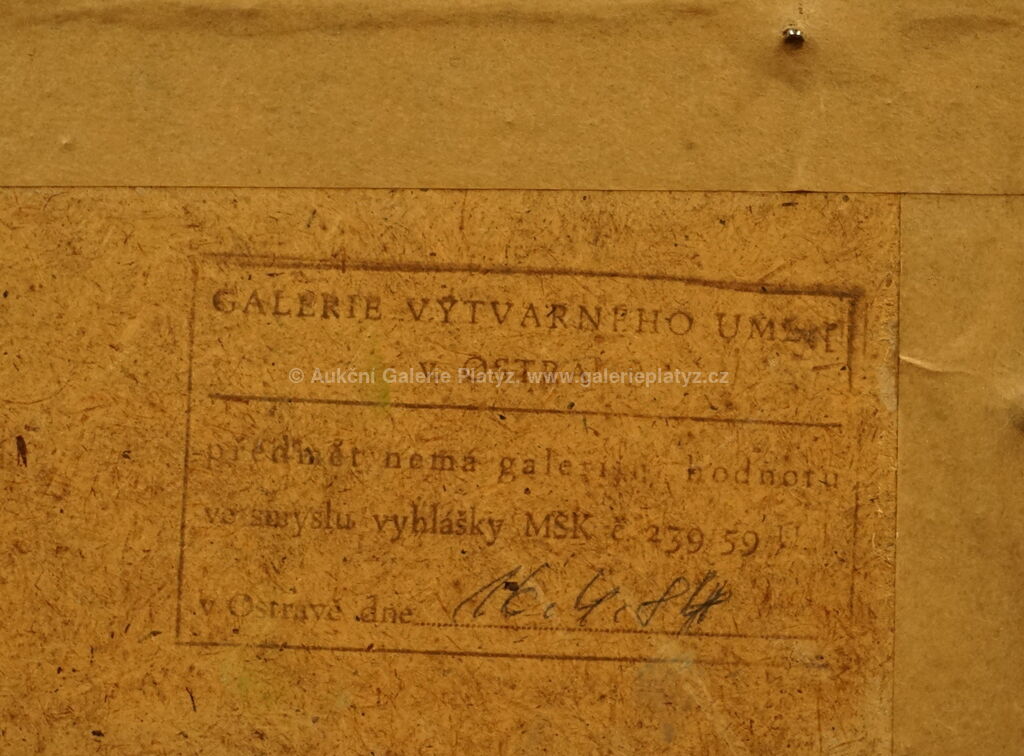 GALERIE VÝTVARNÉHO UMĚNÍ
v OSTRAVĚ
© Aukční Galerie Platýz, www.galerieplatyz.cz
předmět nemá galerijní hodnotu
ve smyslu vyhlášky MŠK č 239 59 U
v Ostravě dne 16.4.84